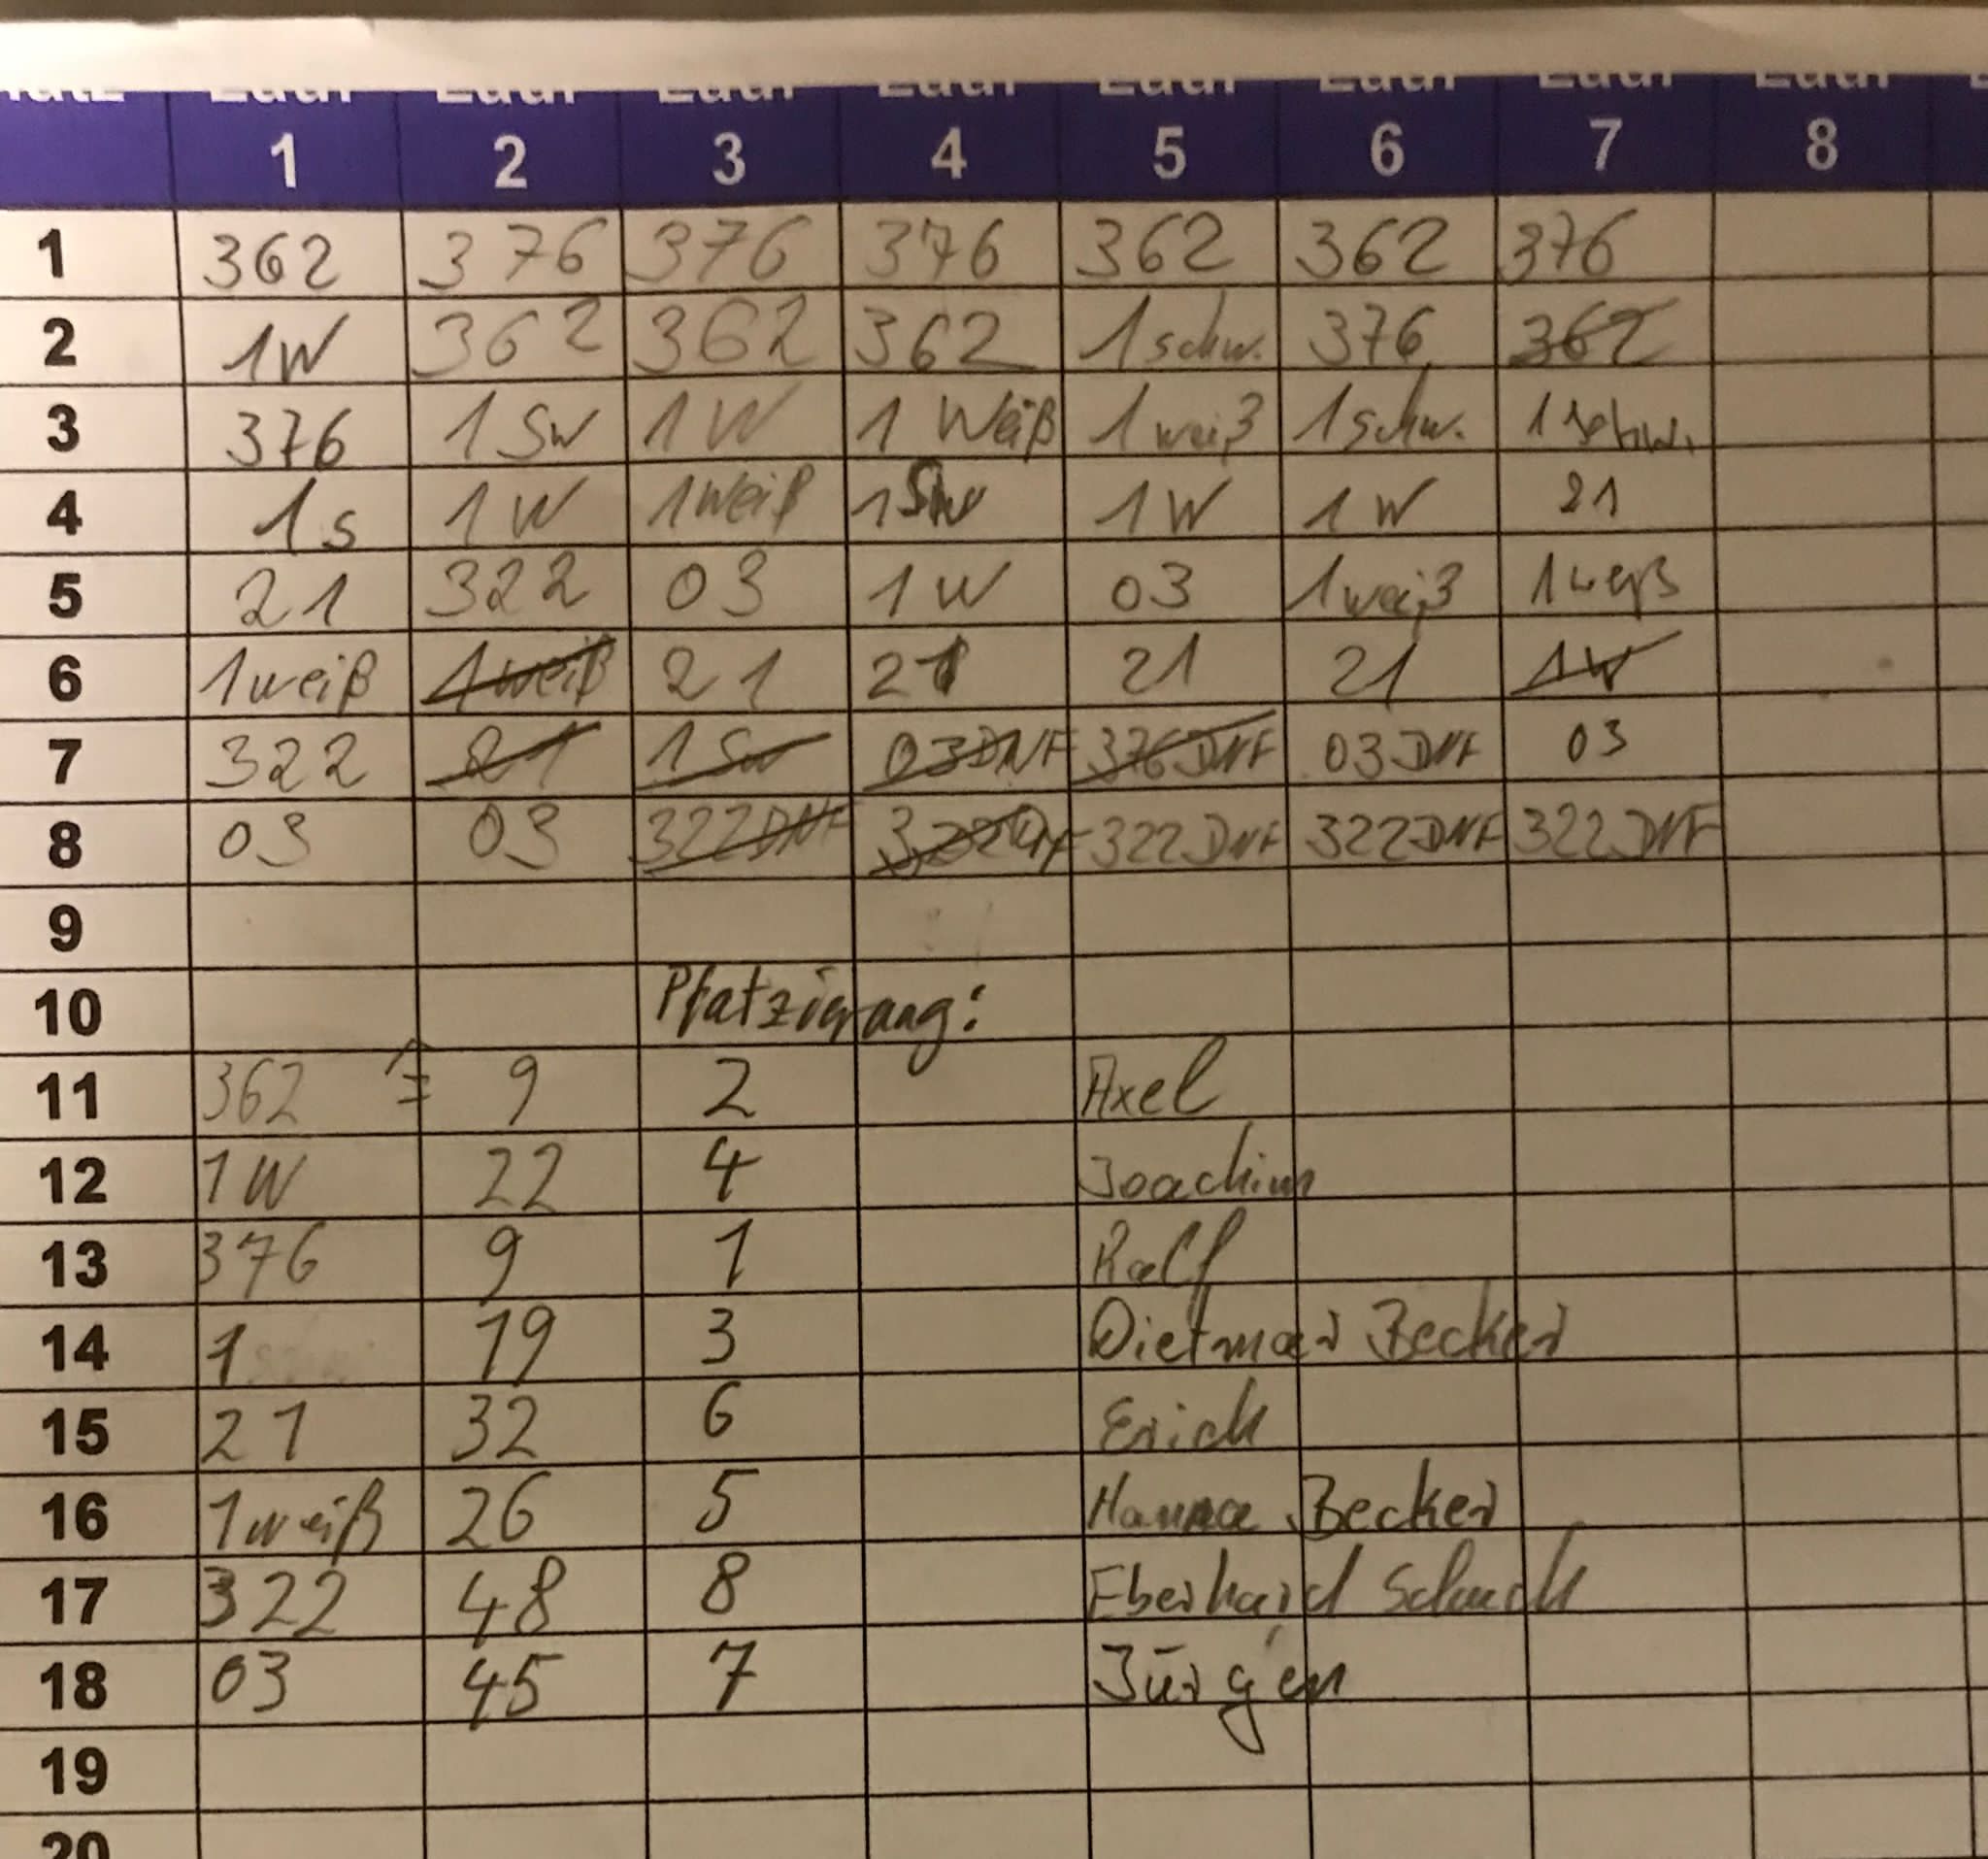 Lauf Lauf Lauf Lauf Lauf Lauf Lauf Lauf
1 2 3 4 5 6 7 8
1 362 376 376 376 362 362 376
2 1W 362 362 362 1schw. 376 362
3 376 1 SW 1 W 1 Weiß 1 weiß 1schw. 1schw.
4 1s 1 W 1Weiß 1SW 1 W 1 W 21
5 21 322 03 1 W 03 1weiß 1weiß
6 1weiß 1weiß 21 21 21 21 1W
7 322 21 1 SW 03DNF 376DNF 03DNF 03
8 03 03 322DNF 322DNF 322DNF 322DNF 322DNF
9
10 Platzierung:
11 362 ≙ 9 2 Axel
12 1W 22 4 Joachim
13 376 9 1 Ralf
14 1 19 3 Dietmar Becker
15 21 32 6 Erich
16 1weiß 26 5 Hanna Becker
17 322 48 8 Eberhard
18 03 45 7 Jürgen
19
20